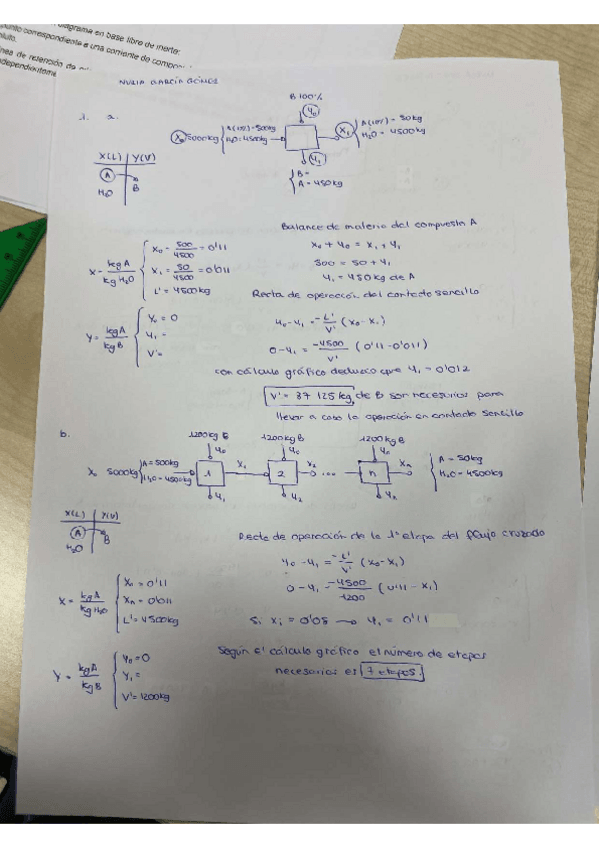 diagrama en base libre de inerte:
punto correspondiente a una corriente de
NURIA GARCÍA GÓMEZ
1. a.
B 100%
Y₀
X₀ 5000kg { A(10%)=500kg
H₂O=4500kg
X₁ { A(10%) = 50kg
H₂O = 4500kg
Y₁
{ B=
A=450kg
X(L) Y(V)
A → B
H₂O
Balance de materia del compuesto A
X₀ + Y₀ = X₁ + Y₁
500 = 50 + Y₁
Y₁ = 450kg de A
X = kg A / kg H₂O
X₀ = 500/4500 = 0'11
X₁ = 50/4500 = 0'011
L' = 4500kg
Recta de operación del contacto sencillo
Y₀ - Y₁ = -L'/V' (X₀ - X₁)
0 - Y₁ = -4500/V' (0'11 - 0'011)
Y = kg A / kg B
Y₀ = 0
Y₁ =
V' =
con cálculo gráfico deduzco que Y₁ = 0'012
V' = 37 125 kg de B son necesarios para
llevar a cabo la operación en contacto sencillo
b.
1200kg B 1200kg B 1200kg B
Y₀ Y₀ Y₀
X₀ 5000kg { A=500kg
H₂O=4500kg
1 X₁ 2 X₂ ... n Xₙ
{ A = 50kg
H₂O = 4500kg
Y₁ Y₂
X(L) Y(V)
A → B
H₂O
Recta de operación de la 1ª etapa del flujo cruzado
Y₀ - Y₁ = -L'/V' (X₀ - X₁)
0 - Y₁ = -4500/1200 (0'11 - X₁)
Si X₁ = 0'08 → Y₁ = 0'11
X = kg A / kg H₂O
X₀ = 0'11
Xₙ = 0'011
L' = 4500kg
Y = kg A / kg B
Y₀ = 0
Y₁ =
V' = 1200kg
Según el cálculo gráfico el número de etapas
necesarias es 7 etapas.